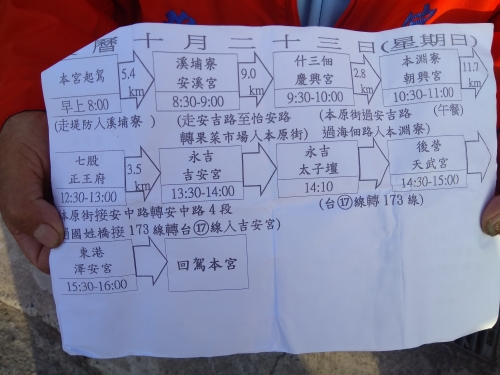 曆十月二十三日(星期日)
本宮起駕
早上 8:00
5.4
km
溪埔寮
安溪宮
8:30-9:00
9.0
km
什三佃
慶興宮
9:30-10:00
2.8
km
本淵寮
朝興宮
10:30-11:00
11.7
km
(走堤防人溪埔寮)
(走安吉路至怡安路
轉果菜市場人本原街)
(本原街過安吉路
過海佃路人本淵寮)
(午餐)
七股
正王府
12:30-13:00
3.5
km
永吉
吉安宮
13:30-14:00
永吉
太子壇
14:10
後營
天武宮
14:30-15:00
本原街接安中路轉安中路 4 段
國姓橋接 173 線轉台⑰線人吉安宮)
(台⑰線轉 173 線)
東港
澤安宮
15:30-16:00
回駕本宮